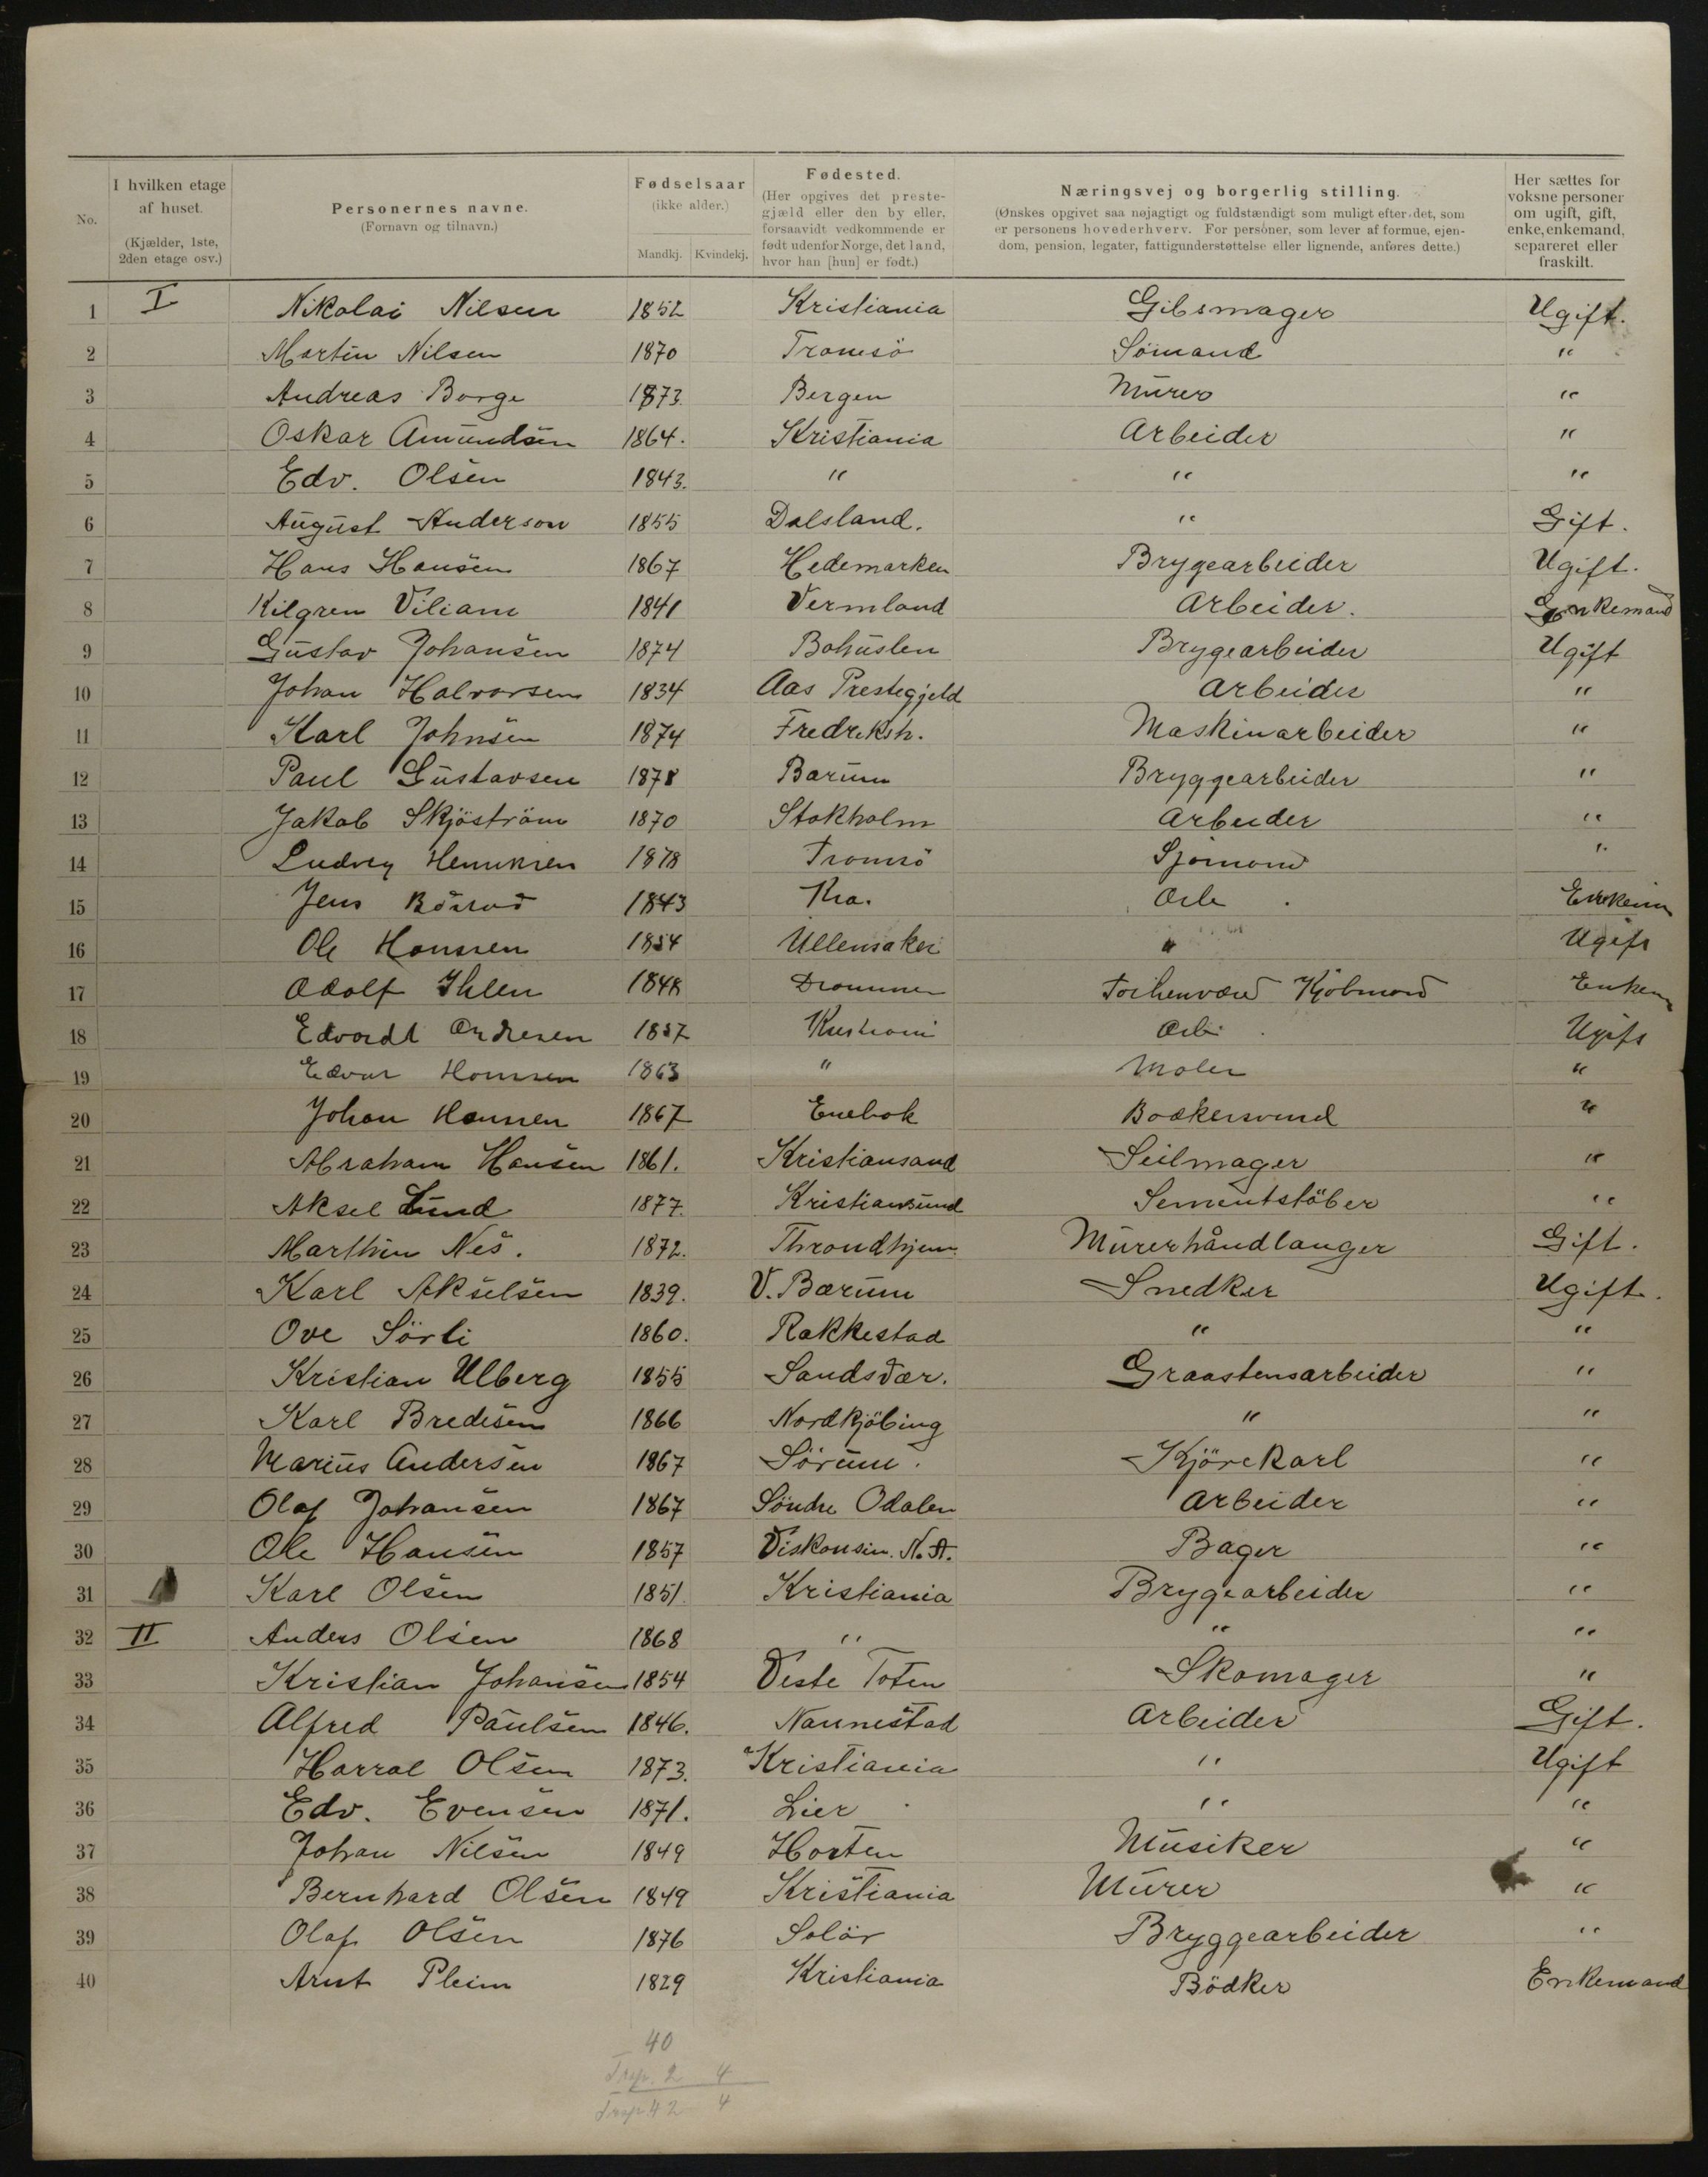 No.
I hvilken etage af huset. (Kjælder, 1ste, 2den etage osv.)
Personernes navne. (Fornavn og tilnavn.)
Fødselsaar (ikke alder.) Mandkj. Kvindekj.
Fødested. (Her opgives det prestegjæld eller den by eller, forsaavidt vedkommende er født udenfor Norge, det land, hvor han [hun] er født.)
Næringsvej og borgerlig stilling. (Ønskes opgivet saa nøjagtigt og fuldstændigt som muligt efter det, som er personens hovederhverv. For personer, som lever af formue, ejendom, pension, legater, fattigunderstøttelse eller lignende, anføres dette.)
Her sættes for voksne personer om ugift, gift, enke, enkemand, separeret eller fraskilt.
1 I Nikolai Nilsen 1852 Kristiania Gibsmager Ugift.
2 Martin Nilsen 1870 Tromsö Sömand "
3 Andreas Borge 1873. Bergen Murer "
4 Oskar Amundsen 1864. Kristiania Arbeider "
5 Edv. Olsen 1843. " " "
6 August Anderson 1855 Dalsland. " Gift.
7 Hans Hansen 1867 Hedemarken Brygearbeider Ugift.
8 Kilgren Viliam 1841 Vermland Arbeider. Enkemand
9 Gustav Johansen 1874 Bohuslen Brygearbeider Ugift
10 Johan Halvorsen 1834 Aas Prestegjeld Arbeider "
11 Karl Johnsen 1874 Fredreksh. Maskinarbeider "
12 Paul Gustavsen 1878 Barum Bryggearbeider "
13 Jakob Skjöström 1870 Stokholm Arbeider "
14 Ludvig Henriksen 1878 Tromsö Sjömand "
15 Jens 1843 Kra. Arb. Enkem
16 Ole Hanssen 1854 Ullensaker " Ugift
17 Adolf Ihlen 1848 Drammen Kjöbmand Enkem
18 Edvardt Andresen 1857 Kristiani Arb. Ugift
19 Edvar Hanssen 1863 " Maler "
20 Johan Hanssen 1867 Enebak Bødkersvend "
21 Abraham Hansen 1861. Kristiansand Seilmager "
22 Aksel Lund 1877. Kristiansund Sementstöber "
23 Marthin Nes. 1872. Throndhjem Murerhåndlanger Gift.
24 Karl Akselsen 1839. V. Bærum Snedker Ugift.
25 Ove Sörli 1860. Rakkestad " "
26 Kristian Ulberg 1855 Sandsvær. Graastensarbeider "
27 Karl Bredesen 1866 Nordkjöbing " "
28 Marius Andersen 1867 Sörum. Kjörekarl "
29 Olaf Johansen 1867 Söndre Odalen Arbeider "
30 Ole Hansen 1857 Viskonsin. N. A. Bager "
31 Karl Olsen 1851. Kristiania Brygearbeider "
32 II Anders Olsen 1868 " " "
33 Kristian Johansen 1854 Vestre Toten Skomager "
34 Alfred Paulsen 1846. Nannestad Arbeider Gift.
35 Harral Olsen 1873. Kristiania " Ugift
36 Edv. Evensen 1871. Lier " "
37 Johan Nilsen 1849 Horten Musiker "
38 Bernhard Olsen 1849 Kristiania Murer "
39 Olaf Olsen 1876 Solör Bryggearbeider "
40 Arnt Pleim 1829 Kristiania Bödker Enkemand
40
2 4
42 4